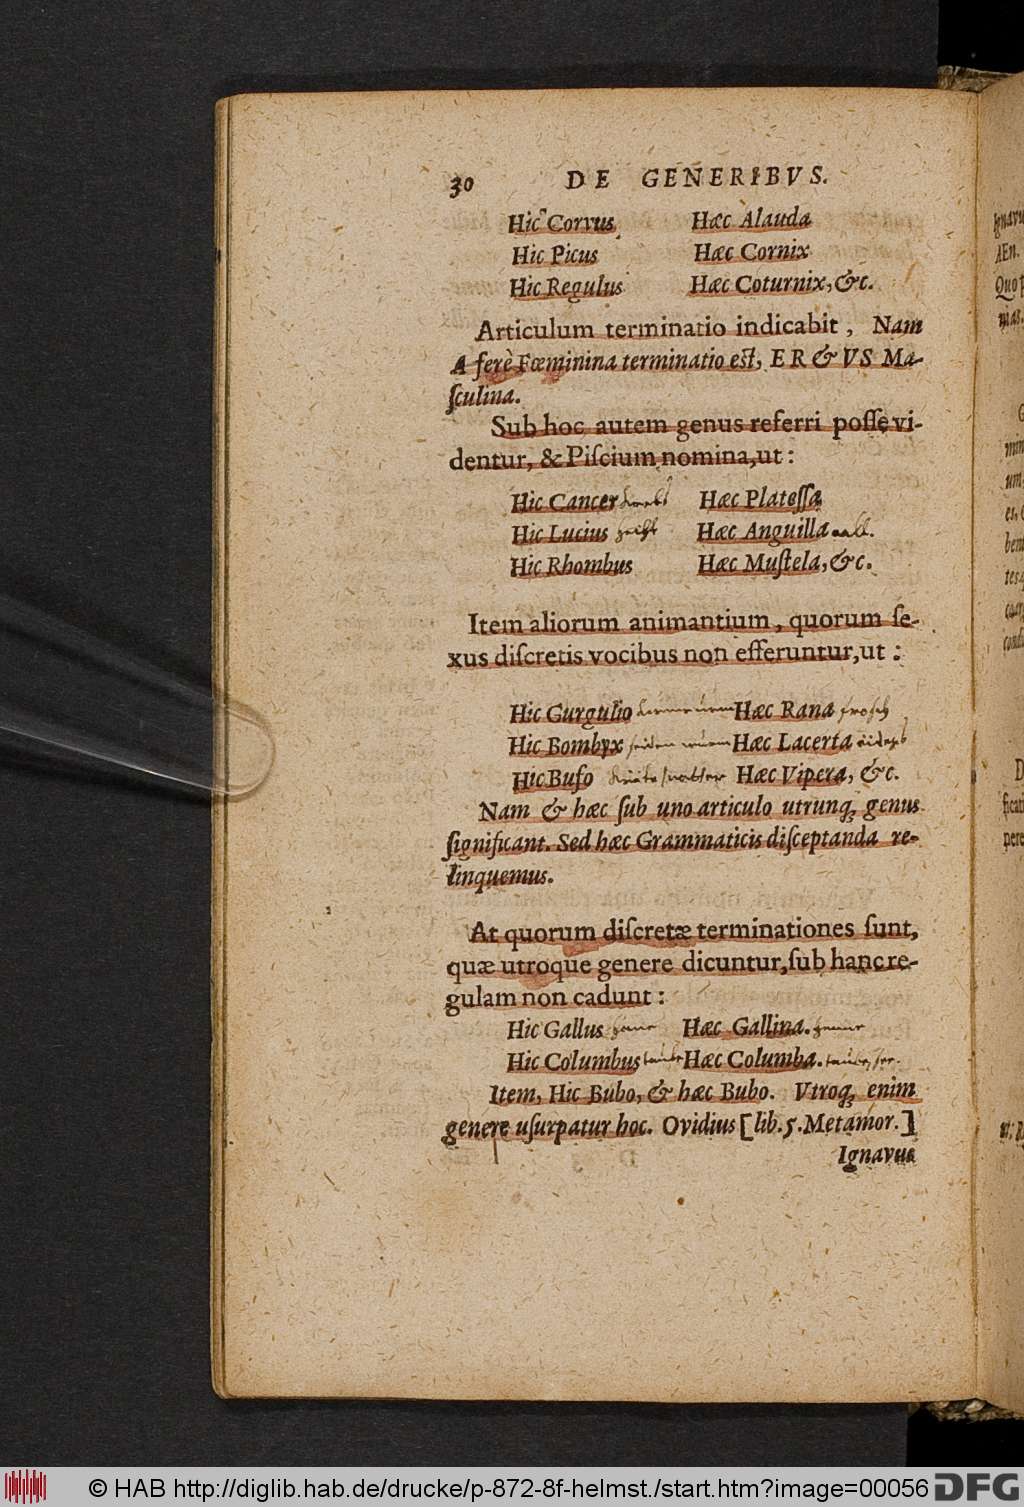 30 DE GENERIBVS.
Hic Corvus Hæc Alauda
Hic Picus Hæc Cornix
Hic Regulus Hæc Coturnix, &c.
Articulum terminatio indicabit, Nam
A ferè Fœminina terminatio est, ER & VS Ma-
ſculina.
Sub hoc autem genus referri poſſe vi-
dentur, & Piſcium nomina, ut:
Hic Cancer Hæc Plateſſa
Hic Lucius Hæc Anguilla aall.
Hic Rhombus Hæc Muſtela, &c.
Item aliorum animantium, quorum ſe-
xus diſcretis vocibus non efferuntur, ut:
Hic Gurgulio Hæc Rana frosch
Hic Bombyx seiden wurm Hæc Lacerta
Hic Bufo Hæc Vipera, &c.
Nam & hæc ſub uno articulo utrunq; genus
ſignificant. Sed hæc Grammaticis diſceptanda re-
linquemus.
At quorum diſcretæ terminationes ſunt,
quæ utroque genere dicuntur, ſub hanc re-
gulam non cadunt:
Hic Gallus Hæc Gallina. henne
Hic Columbus taube Hæc Columba.
Item, Hic Bubo, & hæc Bubo. Vtroq; enim
genere uſurpatur hoc. Ovidius [lib. 5. Metamor.]
Ignavus
© HAB http://diglib.hab.de/drucke/p-872-8f-helmst./start.htm?image=00056 DFG